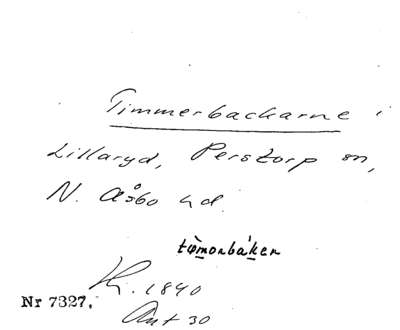 Timmerbackarne i
Lillaryd, Perstorp sn,
N. Åsbo hd.
tìmorbáken
K. 1840
Nr 7327.
Ant 30